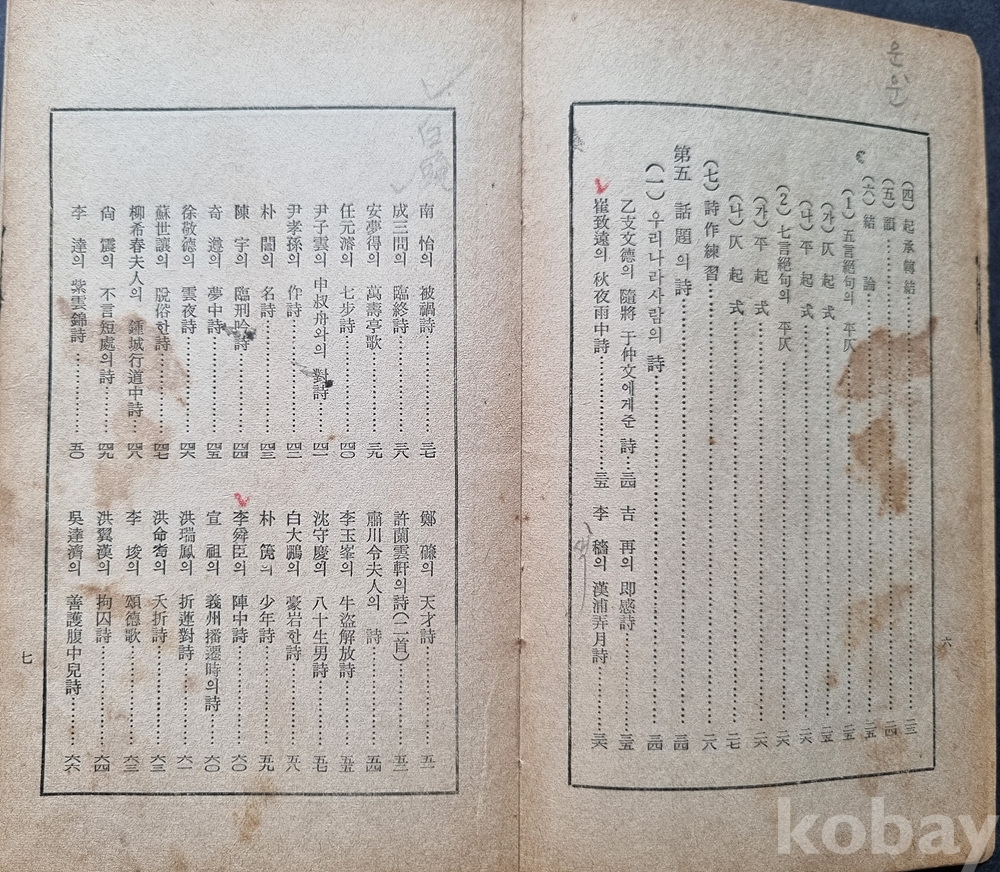 운율
(四) 起承轉結……二三
(五) 韻……二四
(六) 結 論……二五
(1) 五言絕句의 平仄……二五
(가) 仄 起 式……二五
(나) 平 起 式……二六
(2) 七言絕句의 平仄……二六
(가) 平 起 式……二六
(나) 仄 起 式……二七
(七) 詩作練習……二八
第五 話題의 詩……三四
(一) 우리나라사람의 詩……三四
乙支文德의 隨將 于仲文에게준 詩…三四
吉 再의 即感詩……三五
崔致遠의 秋夜雨中詩……三五
李 穡의 漢浦弄月詩……三六
색
六
南 怡의 被禍詩……三七
成三問의 臨終詩……三八
安夢得의 萬壽亭歌……三九
任元濬의 七步詩……四〇
尹子雲의 申叔舟와의 對詩……四一
尹孝孫의 作詩……四二
朴 誾의 名詩……四三
陳 宇의 臨刑吟詩……四四
奇 遵의 夢中詩……四五
徐敬德의 雲夜詩……四六
蘇世讓의 脫俗한詩……四七
柳希春夫人의 鍾城行道中詩……四八
尙 震의 不言短處의詩……四九
李 達의 紫雲錦詩……五〇
鄭 磏의 天才詩……五一
許蘭雲軒의詩(二首)……五二
肅川令夫人의 詩……五四
李玉峯의 牛盜解放詩……五五
沈守慶의 八十生男詩……五七
白大鵬의 豪岩한詩……五八
朴 의 少年詩……五九
李舜臣의 陣中詩……六〇
宣 祖의 義州播遷時의詩……六〇
洪瑞鳳의 折蓮對詩……六一
洪命 의 夭折詩……六三
李 埈의 頌德歌……六三
洪翼漢의 拘囚詩……六四
吳達濟의 善護腹中兒詩……六六
七
kobay